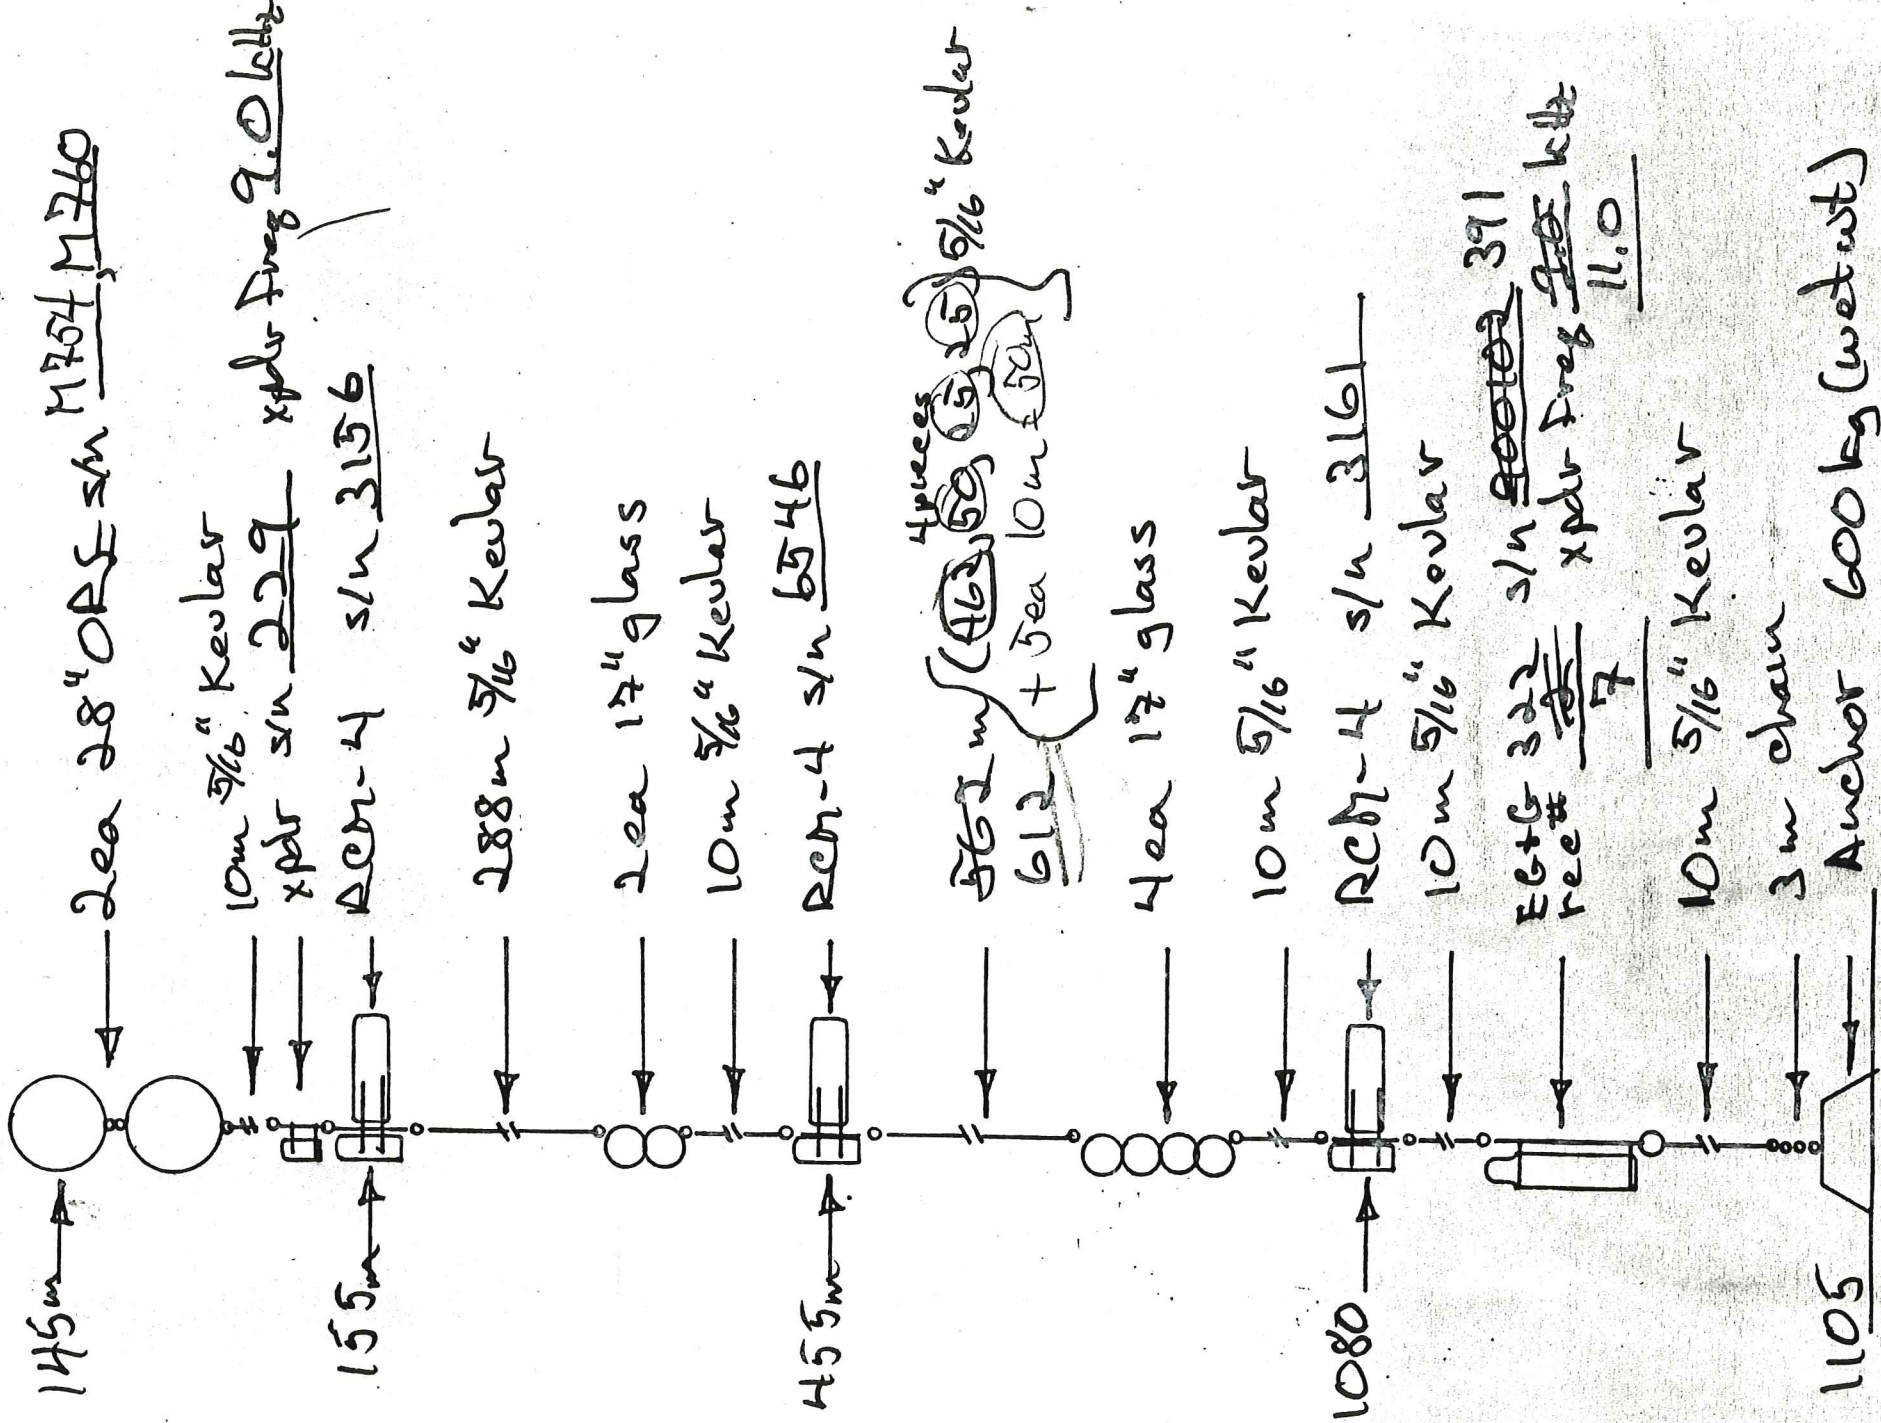 145m
2ea 28" ORE s/n M754, M760
10m 5/16" Kevlar
xpdr s/n 229 xpdr Freq 9.0 kHz
155m
RCM-4 s/n 3156
288m 5/16" Kevlar
2ea 17" glass
10m 5/16" Kevlar
455m
RCM-4 s/n 6546
4 pieces
562m (462, 50, 25, 25) 5/16" Kevlar
612 + 5ea 10m + 50m
4ea 17" glass
10m 5/16" Kevlar
1080
RCM-4 s/n 3161
10m 5/16" Kevlar
EG&G 322 s/n 900102 391
rec# xpdr Freq 9.5 kHz
7 11.0
10m 5/16" Kevlar
3m chain
1105
Anchor 600 kg (wet wt)